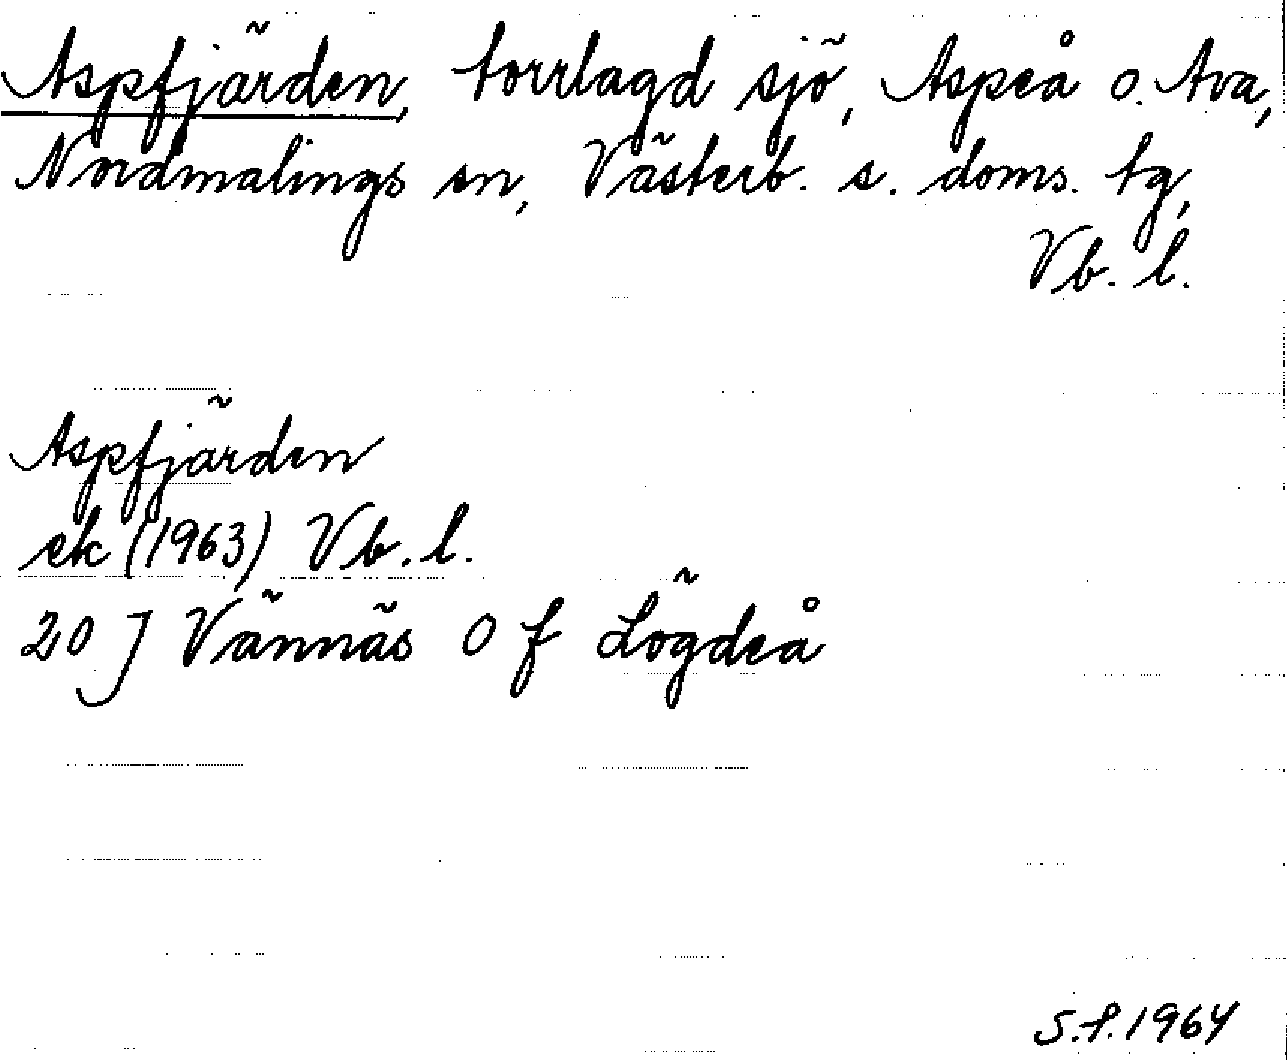 Aspfjärden, torrlagd sjö, Aspeå o. Ava,
Nordmalings sn, Västerb. s. doms. tg,
Vb. l.
Aspfjärden
ek (1963) Vb. l.
20 J Vännäs 0 f Lögdeå
S.f. 1964